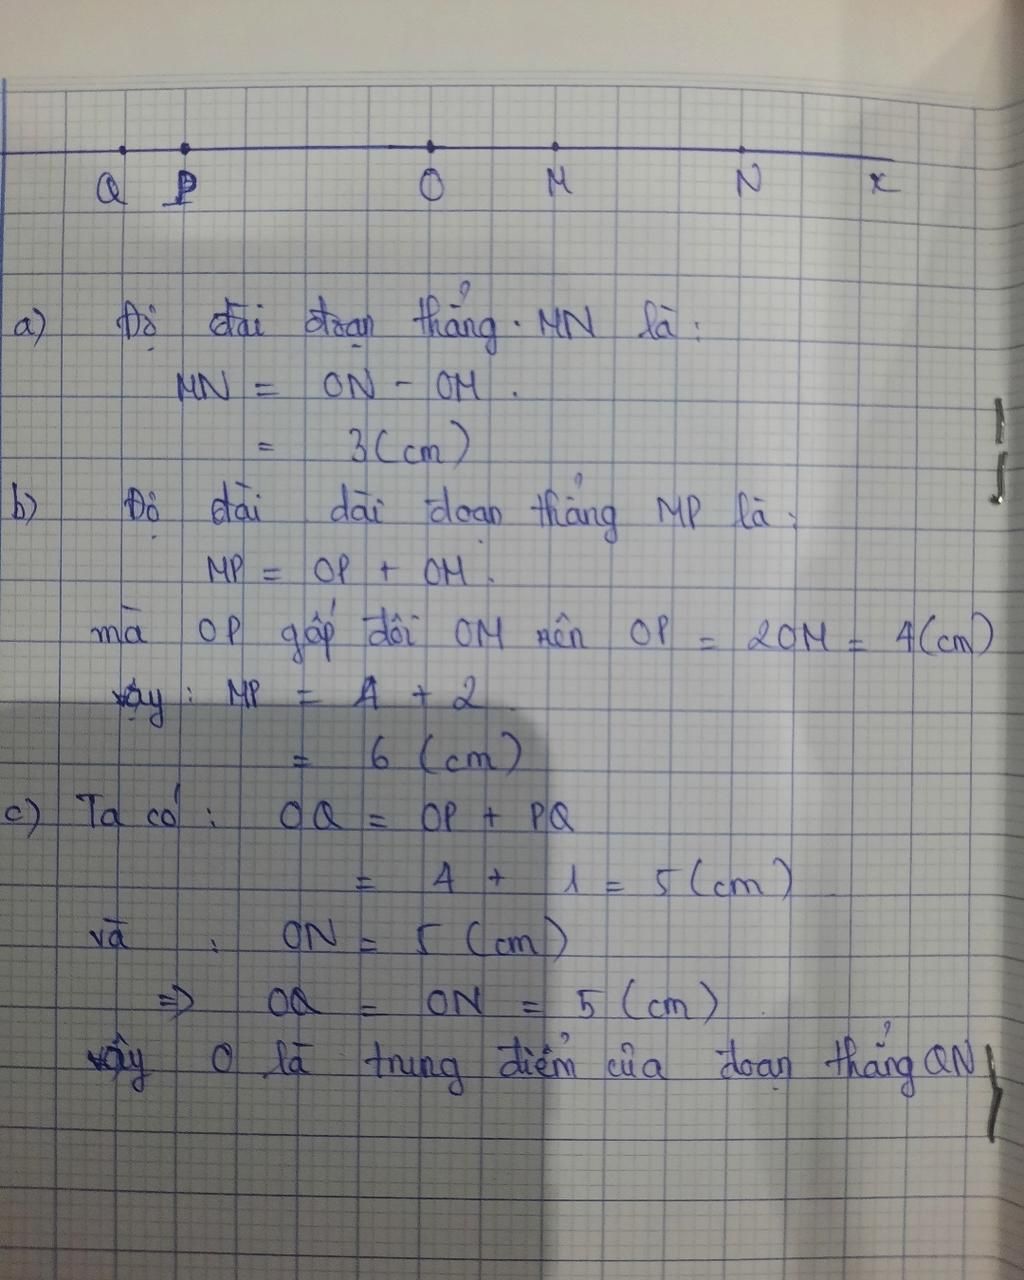 Q P O M N x
a) Độ dài đoạn thẳng MN là:
MN = ON - OM.
= 3(cm)
b) Độ dài dài đoạn thẳng MP là:
MP = OP + OM.
mà OP gấp đôi OM nên OP = 2OM = 4(cm)
vậy: MP = 4 + 2
= 6 (cm)
c) Ta có: OQ = OP + PQ
= 4 + 1 = 5(cm)
và : ON = 5 (cm)
=> OQ = ON = 5 (cm)
vậy O là trung điểm của đoạn thẳng QN